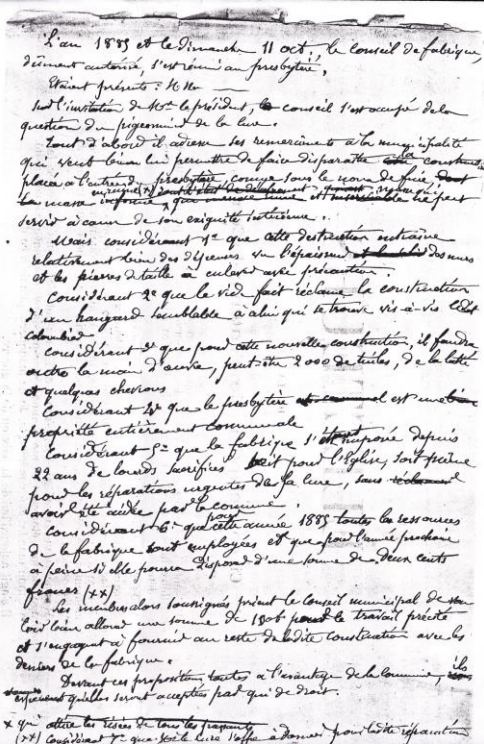 L'an 1885 et le dimanche 11 oct. le conseil de fabrique,
dûment autorisé, s'est réuni au presbytère,
Etaient présents : MM
Sur l'invitation de Mr le président, le conseil s'est occupé de la
question du pigeonnier de la cure.
Tout d'abord il adresse ses remerciments à la municipalité
qui veut bien lui permettre de faire disparaître la construct.
placée à l'entrée du presbytère, conçue sous le nom de
La masse informe, et ne peut
servir à cause de son exiguité intérieure.
Mais considérant 1° que cette destruction entraîne
relativement bien des dépenses vu l'épaisseur des murs
et les pierres de taille à enlever avec précaution.
Considérant 2° que le vide fait réclame la construction
d'un hangard semblable à celui qui se trouve vis-à-vis
colombier
Considérant 3° que pour cette nouvelle construction, il faudra
outre la main d'œuvre, peut-être 2000 de tuiles, de la latte
et quelques chevrons
Considérant 4° que le presbytère est une
propriété entièrement communale
Considérant 5° que la fabrique s'est imposée depuis
22 ans de lourds sacrifices soit pour l'Eglise, soit même
pour les réparations urgentes de la cure, sans
avoir été aidée par la commune.
Considérant 6° que pour cette année 1885 toutes les ressources
de la fabrique sont employées et que pour l'année prochaine
à peine si elle pourra disposer d'une somme de deux cents
francs (xx)
Les membres alors soussignés prient le conseil municipal de
voir bien allouer une somme de pour le travail précité
et s'engagent à fournir au reste de ladite construction avec les
deniers de la fabrique.
Devant ces propositions toutes à l'avantage de la commune, ils
espèrent qu'elles seront acceptées par qui de droit.
x qui attire les risées de tous les passants
(xx) Considérant 7° que Mr le Curé s'offre à donner pour ladite réparation